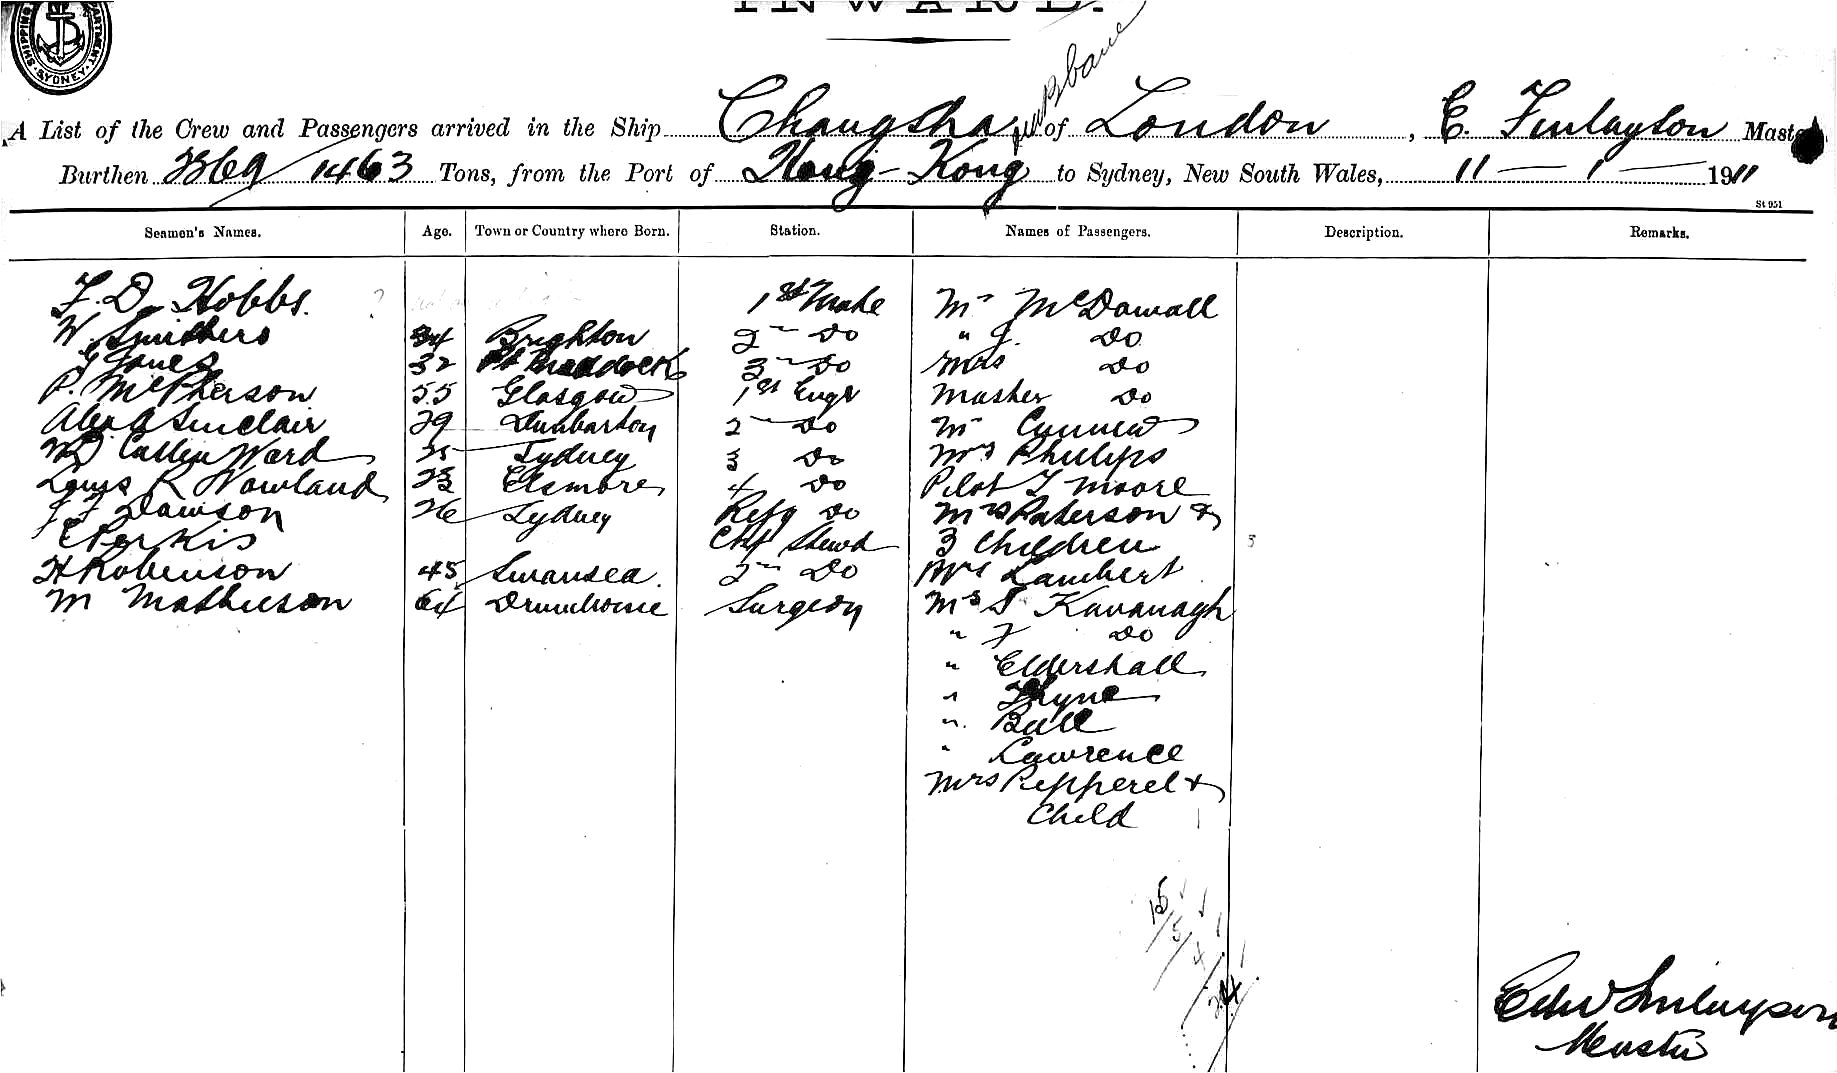 INWARD.
SHIPPING DEPARTMENT SYDNEY
A List of the Crew and Passengers arrived in the Ship Changsha of London, E. Finlayson Master
Burthen 1463 Tons, from the Port of Hong-Kong to Sydney, New South Wales, 11 - 1 - 1911
St 951
Seamen's Names. Age. Town or Country where Born. Station. Names of Passengers. Description. Remarks.
F. D. Hobbs. ? 1st Mate Mr McDowall
W. Smithers 34 Brighton 2 Do " J. Do
G Jones 32 3 Do Mrs Do
P. McPherson 55 Glasgow 1st Engr Master Do
Alex Sinclair 29 Dunbarton 2 Do Mr
W D Cullen Ward 25 Sydney 3 Do Mrs Phillips
Louis R Nowland 23 Elsmore 4 Do Pilot T Moore
J F Dawson 26 Sydney Refg Do Mrs Paterson &
E Perkis Chf Stewd 3 Children
H Robinson 45 Swansea. 2nd Do Mrs Lambert
M Mathieson 64 Surgeon Ms S Kavanagh
" F Do
" Eldershall
" Thyne
" Ball
" Lawrence
Mrs Pepperel &
Child
15
5
4
24
Edw Finlayson
Master